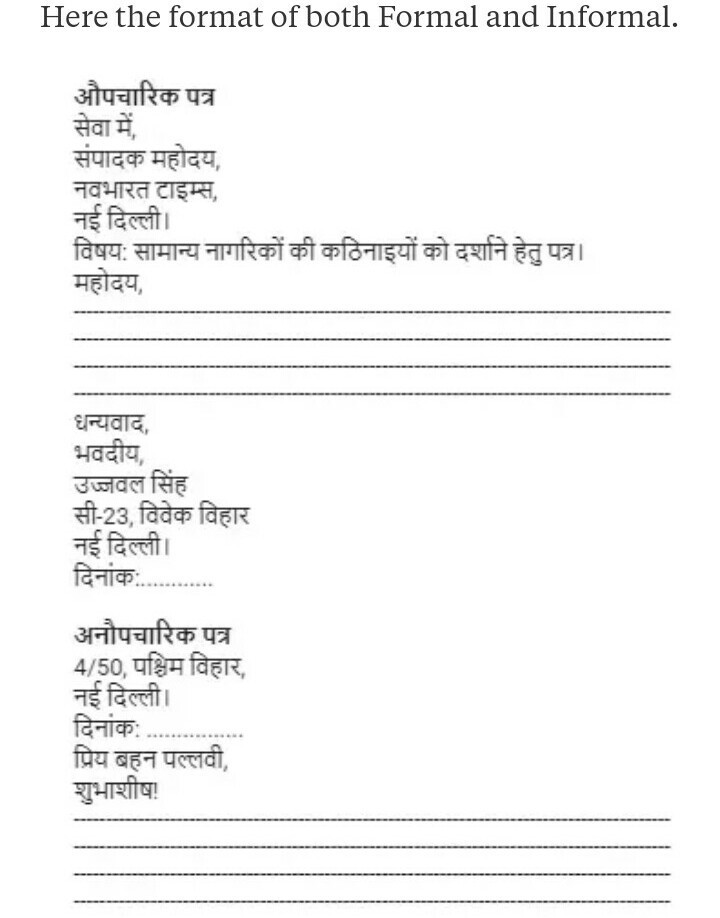 Here the format of both Formal and Informal.
औपचारिक पत्र
सेवा में,
संपादक महोदय,
नवभारत टाइम्स,
नई दिल्ली।
विषय: सामान्य नागरिकों की कठिनाइयों को दर्शाने हेतु पत्र।
महोदय,
धन्यवाद,
भवदीय,
उज्जवल सिंह
सी-23, विवेक विहार
नई दिल्ली।
दिनांक:.............
अनौपचारिक पत्र
4/50, पश्चिम विहार,
नई दिल्ली।
दिनांक: .................
प्रिय बहन पल्लवी,
शुभाशीष!